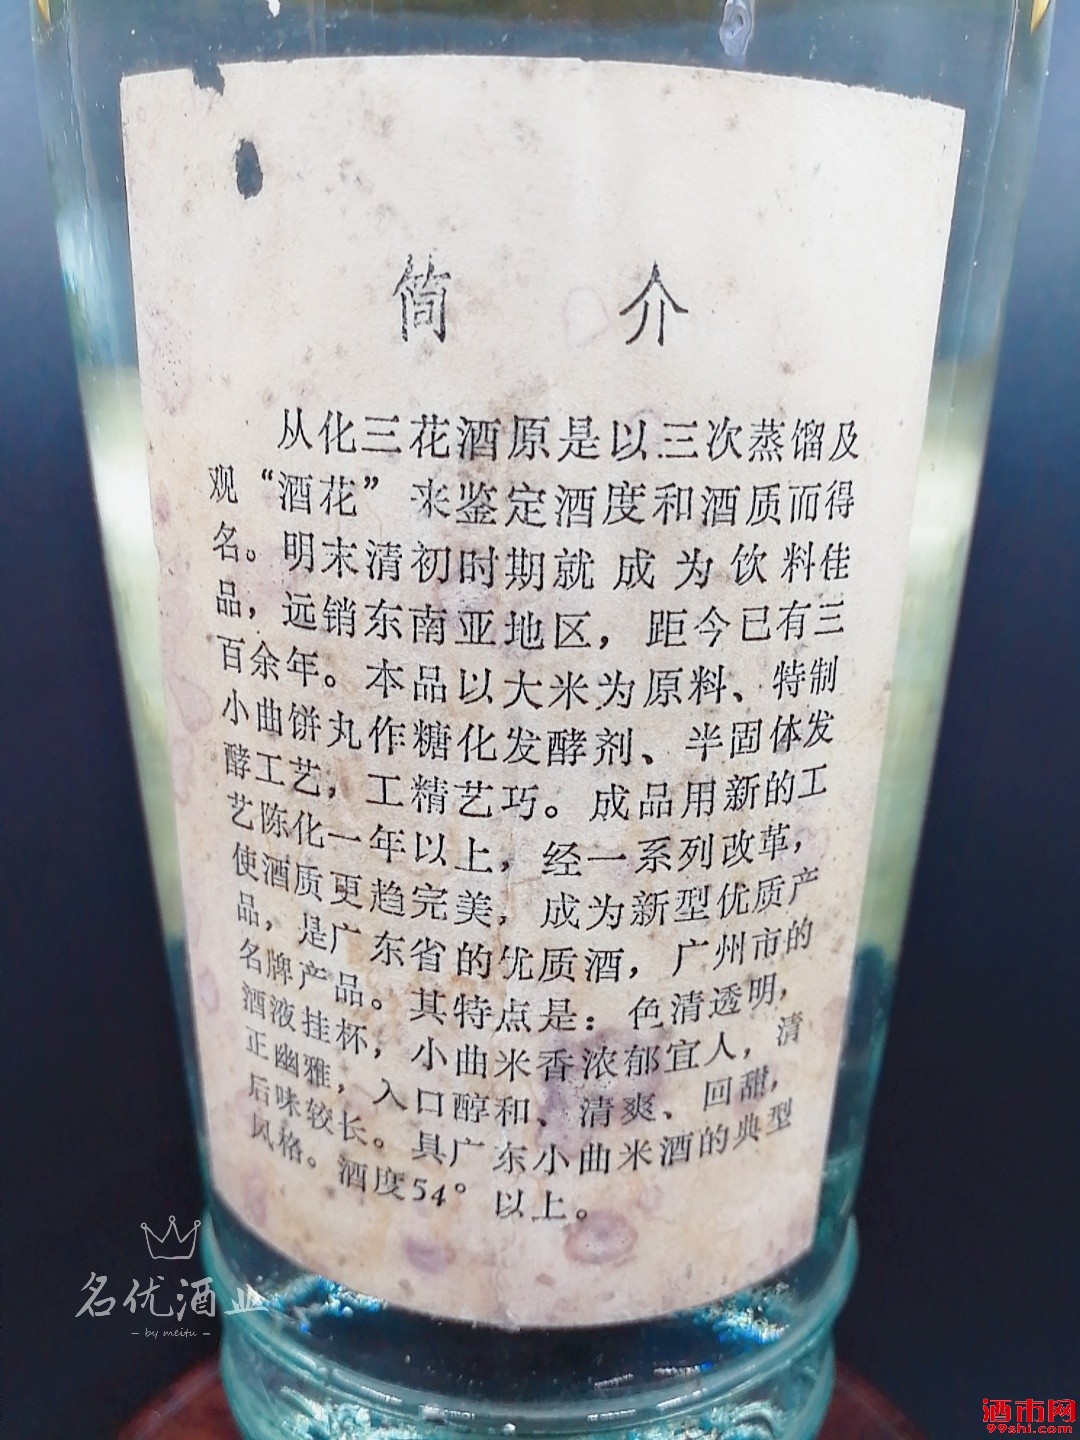 简 介
从化三花酒原是以三次蒸馏及
观“酒花”来鉴定酒度和酒质而得
名。明末清初时期就成为饮料佳
品，远销东南亚地区，距今已有三
百余年。本品以大米为原料、特制
小曲饼丸作糖化发酵剂、半固体发
酵工艺，工精艺巧。成品用新的工
艺陈化一年以上，经一系列改革，
使酒质更趋完美，成为新型优质产
品，是广东省的优质酒，广州市的
名牌产品。其特点是：色清透明，
酒液挂杯，小曲米香浓郁宜人，清
正幽雅，入口醇和、清爽、回甜，
后味较长。具广东小曲米酒的典型
风格。酒度54°以上。
名优酒业
- by meitu -
酒市网
99shi.com